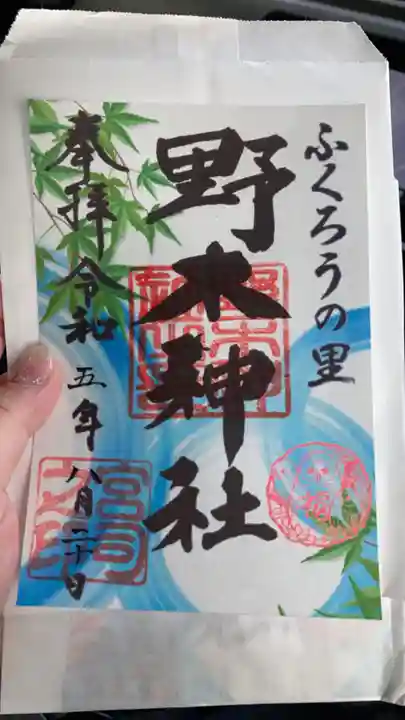 ふくろうの里
野木神社
奉拝 令和五年八月二十日
宮司之印